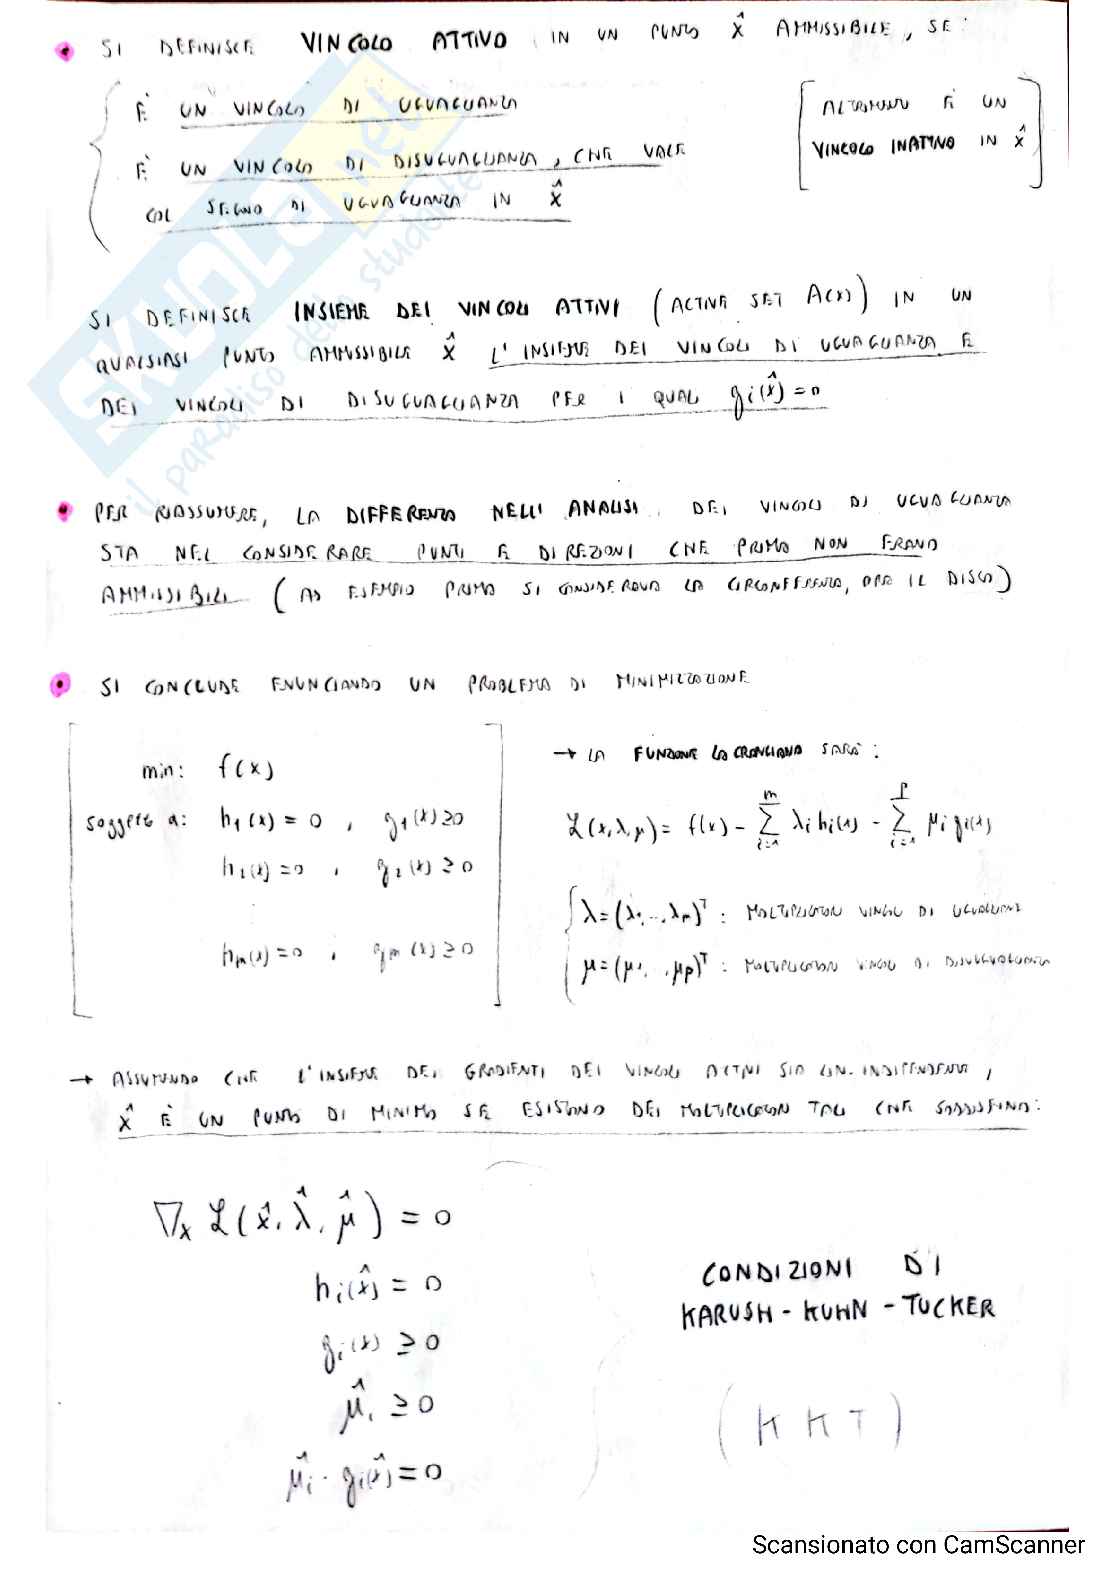 • SI DEFINISCE VINCOLO ATTIVO IN UN PUNTO x̂ AMMISSIBILE, SE:
È UN VINCOLO DI UGUAGLIANZA
È UN VINCOLO DI DISUGUAGLIANZA, CHE VALE
COL SEGNO DI UGUAGLIANZA IN x̂
[ALTRIMENTI È UN
VINCOLO INATTIVO IN x̂]
SI DEFINISCE INSIEME DEI VINCOLI ATTIVI (ACTIVE SET A(x)) IN UN
QUALSIASI PUNTO AMMISSIBILE x̂ L'INSIEME DEI VINCOLI DI UGUAGLIANZA E
DEI VINCOLI DI DISUGUAGLIANZA PER I QUALI gi(x̂)=0
• PER RIASSUMERE, LA DIFFERENZA NELL'ANALISI DEI VINCOLI DI UGUAGLIANZA
STA NEL CONSIDERARE PUNTI E DIREZIONI CHE PRIMA NON ERANO
AMMISSIBILI (AD ESEMPIO PRIMA SI CONSIDERAVA LA CIRCONFERENZA, ORA IL DISCO)
• SI CONCLUDE ENUNCIANDO UN PROBLEMA DI MINIMIZZAZIONE
min: f(x)
soggetto a: h1(x) = 0 , g1(x) ≥ 0
h2(x) = 0 , g2(x) ≥ 0
hm(x) = 0 , gm(x) ≥ 0
→ LA FUNZIONE LAGRANGIANA SARÀ:
ℒ(x,λ,μ) = f(x) - Σ_{i=1}^{m} λi hi(x) - Σ_{i=1}^{p} μi gi(x)
λ = (λ1,..,λm)^T : MOLTIPLICATORI VINCOLI DI UGUAGLIANZA
μ = (μ1,..,μp)^T : MOLTIPLICATORI VINCOLI DI DISUGUAGLIANZA
→ ASSUMENDO CHE L'INSIEME DEI GRADIENTI DEI VINCOLI ATTIVI SIA LIN. INDIPENDENTE,
x̂ È UN PUNTO DI MINIMO SE ESISTONO DEI MOLTIPLICATORI TALI CHE SODDISFANO:
∇x ℒ(x̂, λ̂, μ̂) = 0
hi(x̂) = 0
gi(x) ≥ 0
μ̂i ≥ 0
μ̂i · gi(x̂) = 0
CONDIZIONI DI
KARUSH - KUHN - TUCKER
(KKT)
SKUOLA.net
il paradiso dello studente
Scansionato con CamScanner